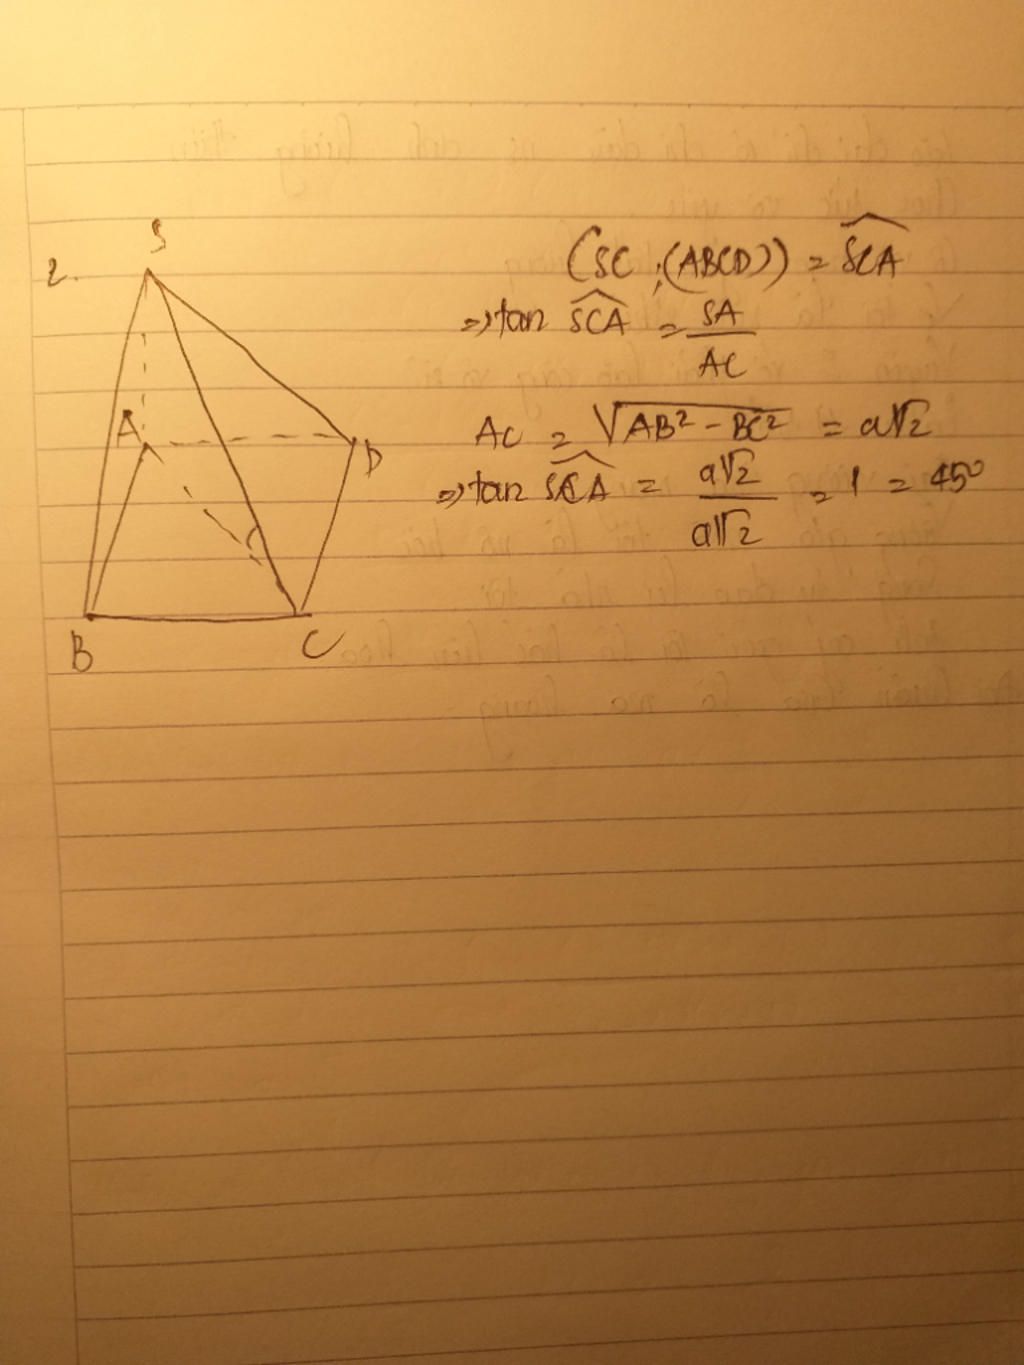 2.
S
A
D
B
C
(SC ; (ABCD)) = \widehat{SCA}
=> tan \widehat{SCA} = \frac{SA}{AC}
AC = \sqrt{AB² - BC²} = a√2
=> tan \widehat{SCA} = \frac{a√2}{a√2} = 1 = 45°